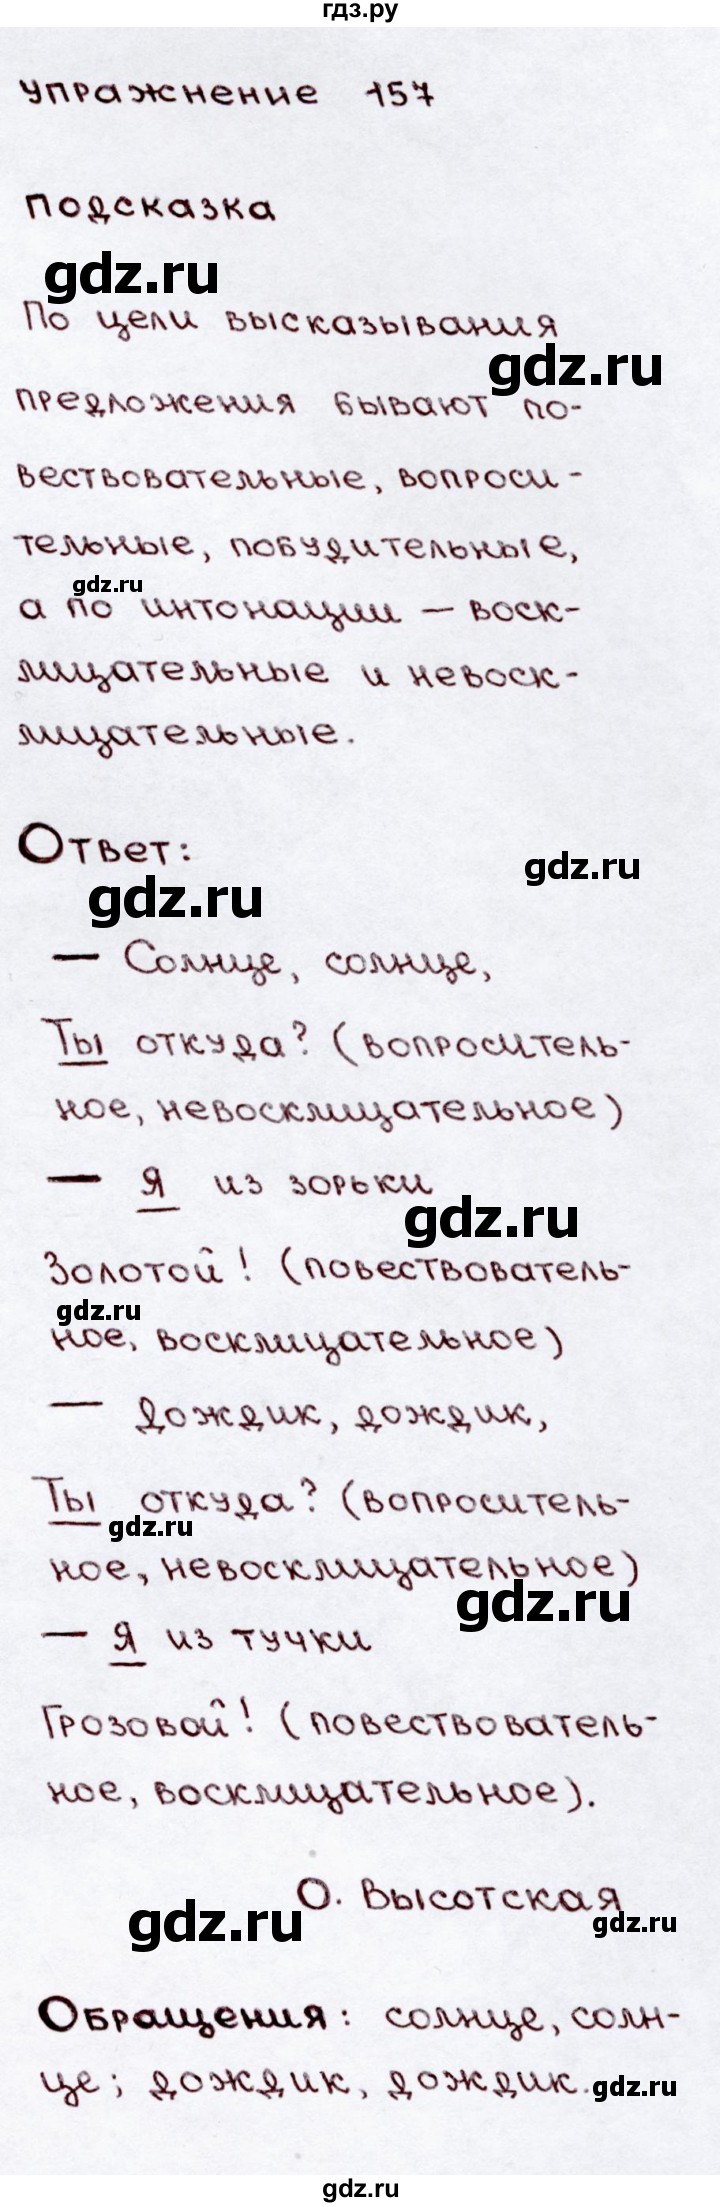 гдз.ру
упражнение 157
подсказка
gdz.ru
По цели высказывания
gdz.ru
предложения бывают по-
вествовательные, вопроси-
тельные, побудительные,
gdz.ru
а по интонации — воск-
лицательные и невоск-
лицательные.
Ответ:
gdz.ru
gdz.ru
— Солнце, солнце,
Ты откуда? (вопроситель-
ное, невосклицательное)
— Я из зорьки
gdz.ru
Золотой! (повествователь-
gdz.ru
ное, восклицательное)
— Дождик, дождик,
Ты откуда? (вопроситель-
gdz.ru
ное, невосклицательное)
gdz.ru
— Я из тучки
Грозовой! (повествователь-
ное, восклицательное).
О. Высотская
gdz.ru
gdz.ru
Обращения: солнце, солн-
це; дождик, дождик.
gdz.ru
gdz.ru